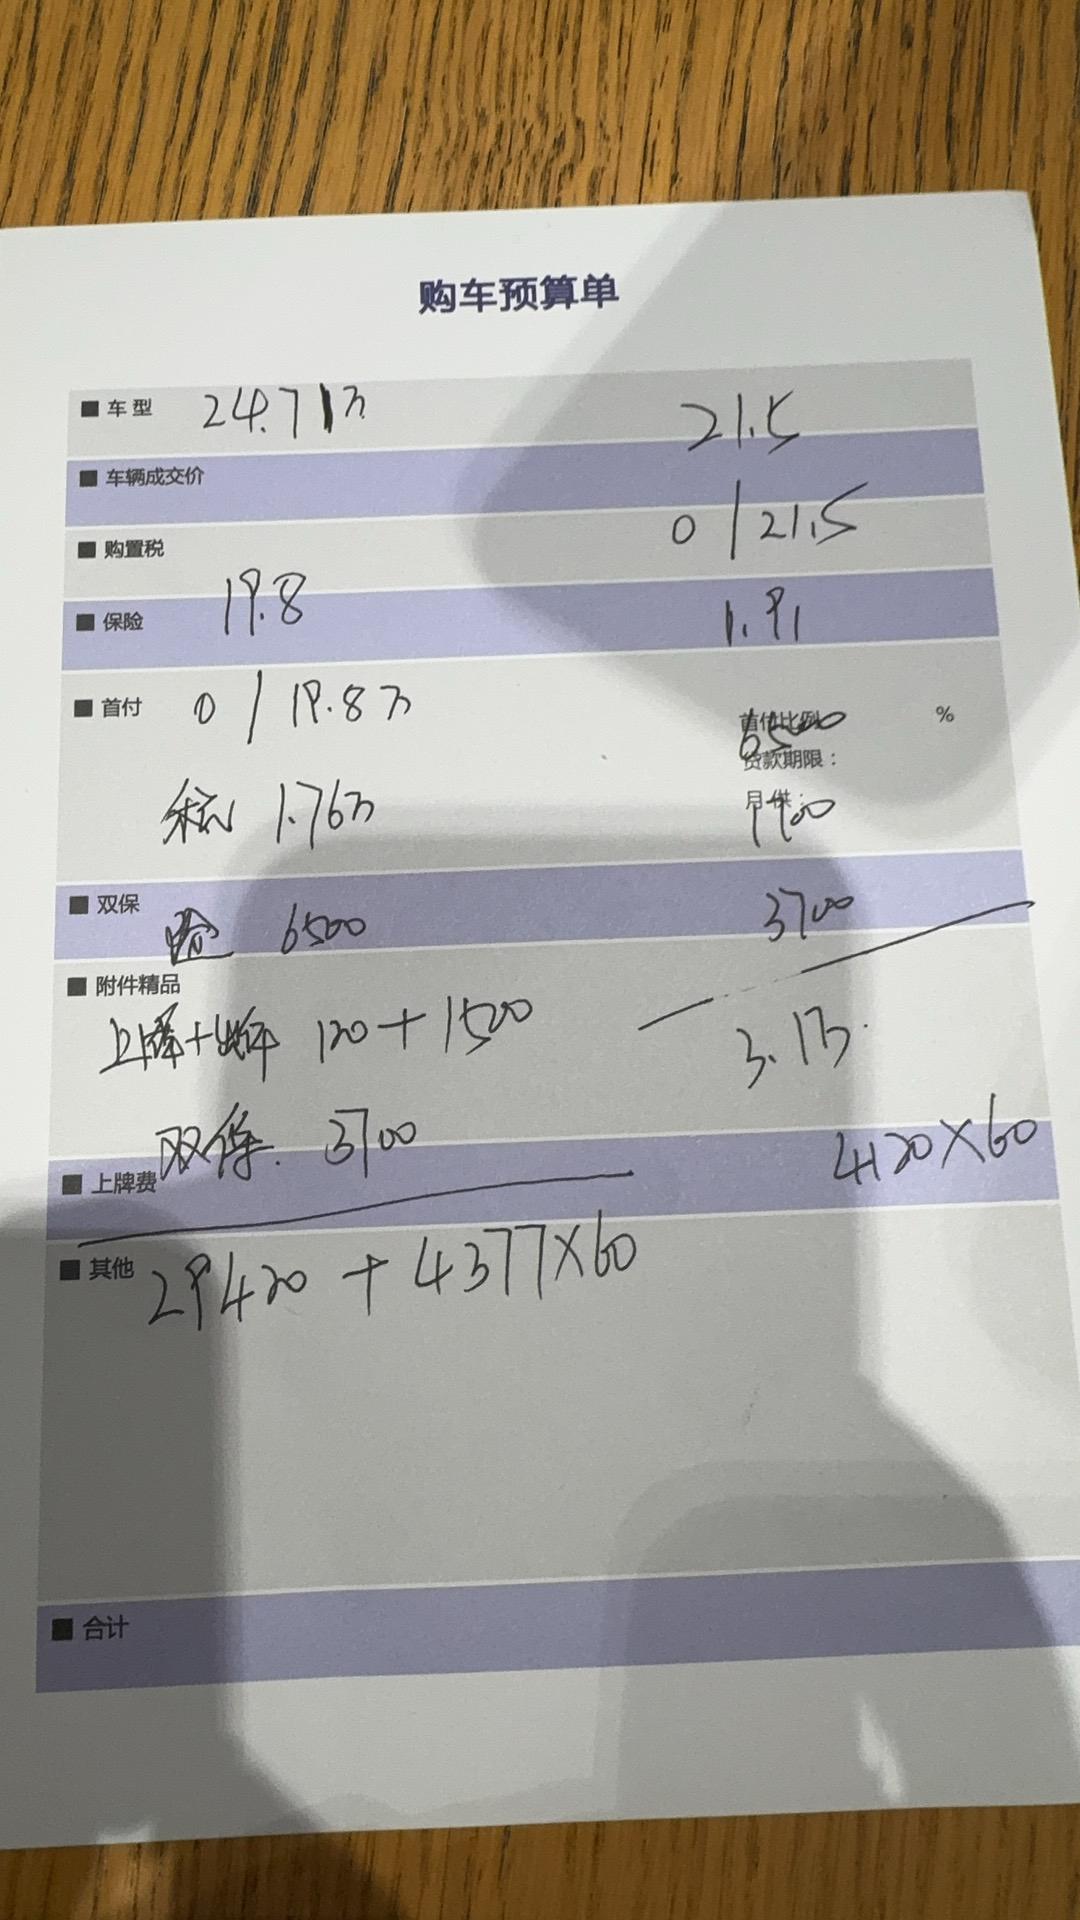 购车预算单
■ 车型 24.71万 21.5
■ 车辆成交价
0 / 21.5
■ 购置税
■ 保险 19.8 1.91
■ 首付 0 / 19.8万
首付比例 %
6500
贷款期限：
税 1.76万
月供：
■ 双保 3700
险 6500
■ 附件精品
上牌+ 120+1500 3.1万
双保. 3700 4120×60
■ 上牌费
■ 其他 29420 + 4377×60
■ 合计